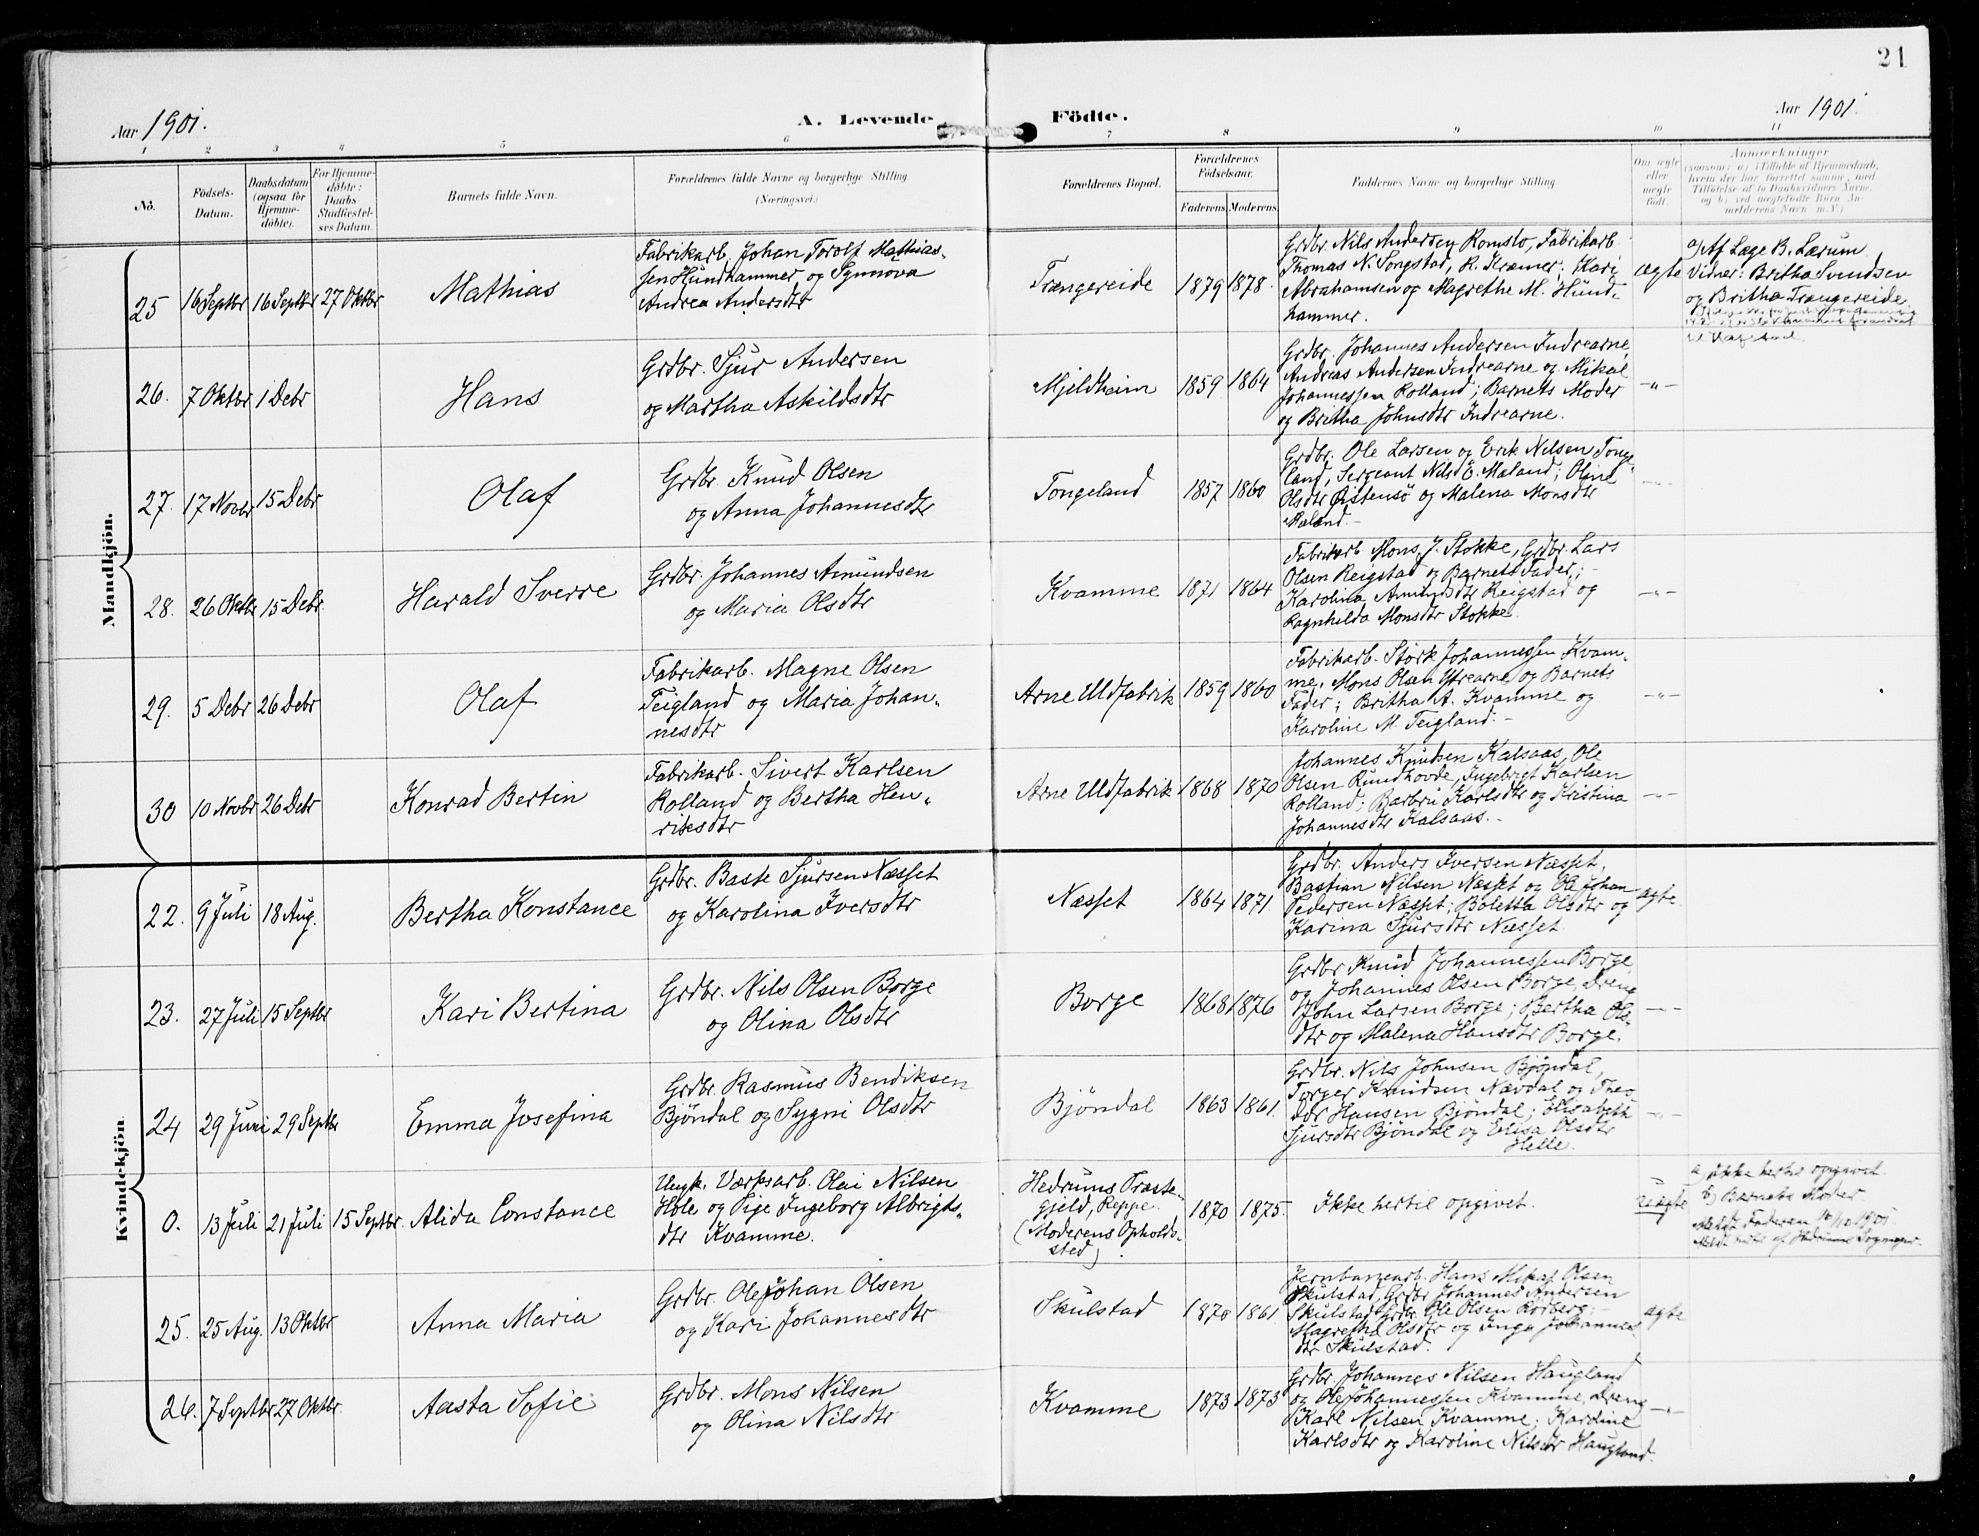 21
Aar 1901.
A. Levende
Födte.
Aar 1901.
1 2 3 4 5 6 7 8 9 10 11
No.
Födsels-
Datum.
Daabsdatum
(ogsaa for
Hjemme-
døbte).
For Hjemme-
døbte:
Daabs
Stadfæstel-
ses Datum
Barnets fulde Navn.
Forældrenes fulde Navne og borgerlige Stilling
(Næringsvei.)
Forældrenes Bopæl.
Forældrenes
Födselsaar.
Faderens. Moderens.
Faddernes Navne og borgerlige Stilling
Om ægte
eller
uægte
født.
Anmærkninger
(saasom: a) i Tilfælde af Hjemmedaab,
hvem der har forrettet samme, med
Tilføielse af to Daabsvidners Navne,
og b) ved uegtefødte Börn An-
melderens Navn m.V.)
Mandkjön.
25
16 Septbr
16 Septbr
27 Oktbr
Mathias
Fabrikarb. Johan Torolf Mathias-
sen Hundhammer og Synnova
Andrea Andersdtr
Trængereide
1879
1878
Grdbr. Nils Andersen Romslo, Fabrikarb.
Thomas N. Songstad, R. Kræmer. Kari
Abrahamsen og Magrethe M. Hund-
hammer.
ægte
a) Af Lage B. Lærum
Vidner: Britha Svendsen
og Britha Trængereide
26.
7 Oktbr
1 Debr
Hans
Grdbr. Sjur Andersen
og Martha Askildsdtr
Mjeldheim
1859
1864
Grdbr. Johannes Andersen Indrearne,
Andreas Andersen Indrearne og Mikal
Johannessen Rolland; Barnets Moder
og Britha Johnsdtr Indrearne.
-"-
27.
17 Novbr
15 Debr
Olaf
Grdbr. Knud Olsen
og Anna Johannesdtr
Tongeland
1857
1860
Grdbr. Ole Larsen og Erik Nilsen Tonge-
land, Sergeant Nils E. Mæland; Oline
Olsdtr Østensø og Malena Monsdtr
Mæland.-
-"-
28.
26 Oktbr
15 Debr
Harald Sverre
Grdbr. Johannes Amundsen
og Maria Olsdtr
Kvamme
1871
1864
Fabrikarb Mons J. Stokke, Grdbr. Lars
Olsen Reigstad og Barnets Fader; -
Karolina Amundsdtr Reigstad og
Ragnhilda Monsdtr Stokke.
-"-
29.
5 Debr
26 Debr
Olaf
Fabrikarb. Magne Olsen
Teigland og Maria Johan-
nesdtr
Arne Uldfabrik
1859
1860
Fabrikarb. Størk Johannessen Kvam-
me, Mons Olsen Ytrearne og Barnets
Fader; Britha A. Kvamme og
Karoline M. Teigland. -
-"-
30
10 Novbr
26 Debr
Konrad Bertin
Fabrikarb. Sivert Karlsen
Rolland og Bertha Hen-
riksdtr
Arne Uldfabrik
1868
1870
Johannes Knudsen Kalsaas, Ole
Olsen Rundhovde, Ingebrigt Karlsen
Rolland; Barbru Karlsdtr og Kristina
Johannesdtr Kalsaas. -
-"-
Kvindekjön.
22.
9 Juli
18 Aug.
Bertha Konstance
Grdbr. Baste Sjursen Næsset
og Karolina Iversdtr
Næsset
1864
1871.
Grdbr. Anders Iversen Næsset,
Bastian Nilsen Næsset og Ole Johan
Pedersen Næsset; Boletta Olsdtr og
Karina Sjursdtr Næsset
ægte.
23.
27 Juli
15 Septbr
Kari Bertina
Grdbr. Nils Olsen Borge
og Olina Olsdtr
Borge
1868
1876
Grdbr Knud Johannessen Borge
og Johannes Olsen Borge, Dreng
John Larsen Borge; Bertha Ols-
dtr og Malena Hansdtr Borge.
-"-
24
29 Juni
29 Septbr
Emma Josefina
Grdbr. Rasmus Bendiksen
Bjöndal og Sygni Olsdtr
Bjöndal
1863
1861.
Grdbr. Nils Johnsen Bjöndal,
Torger Knudsen Nævdal og Theo-
dor Hansen Bjöndal; Elisabeth
Sjursdtr Bjöndal og Elisa Olsdtr
Helle.
-"-
0.
13 Juli
21 Juli
15 Septbr.
Alida Constance
Ungk. Værksarb. Olai Nilsen
Hole og Pige Ingeborg Albrigts-
dtr Kvamme.
Hedrums Præste-
gjeld, Reppe.
(Moderens Opholds-
sted)
1870
1875
Ikke hertil opgivet.
uægte
a) ikke hertil opgivet
b) Barnets Moder
25.
25 Aug.
13 Oktbr
Anna Maria
Grdbr. Ole Johan Olsen
og Kari Johannesdtr
Skulstad
1870
1861
Jernbanearb. Hans Mikal Olsen
Skulstad, Grdbr Johannes Andersen
Skulstad, Grdbr. Ole Olsen Rorberg; -
Magretha Olsdtr og Inga Johannes
dtr Skulstad.
ægte
26.
7 Septbr
27 Oktbr.
Aasta Sofie
Grdbr. Mons Nilsen
og Olina Nilsdtr
Kvamme
1873
1873
Grdbr. Johannes Nilsen Haugland
og Ole Johannessen Kvamme, Dreng
Karl Nilsen Kvamme; Karoline
Karlsdtr og Karoline Nilsdtr Haugland.
-"-